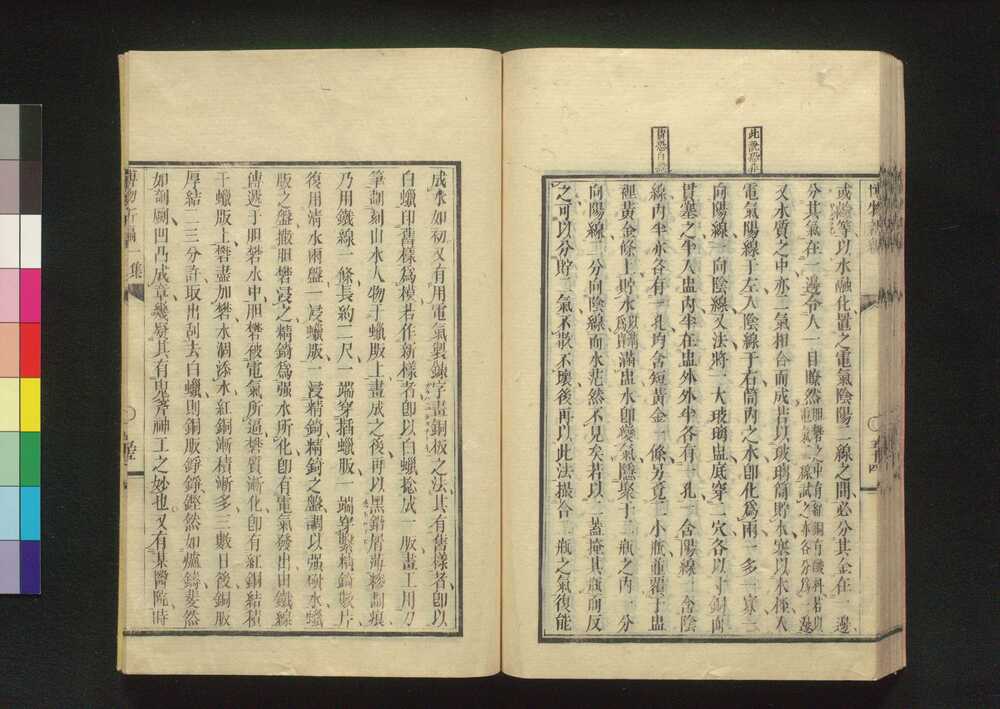 此說恐非
或鹽等以水融化置之電氣陰陽二線之間必分其金在一邊
分其氣在一邊令人一目瞭然胆礬之中有紅銅有磺料若以
電氣二線試之亦各分爲一邊
又水質之中亦二氣相合而成若以玻璃筒貯水塞以木極入
電氣陽線于左入陰線于右筒內之水卽化爲兩一多一寡一
向陽線一向陰線又法將一大玻璃盅底穿二穴各以寸銅兩
貫塞之半入盅內半在盅外外半各有一孔一含陽線一含陰
線內半亦各有一孔均含短黃金一條另覓二小瓶並覆于盅
裡黃金條上貯水滿盅水卽變氣騰聚于二瓶之內一分
向陽線一分向陰線而水茫然不見矣若以二蓋掩其瓶而反
之可以分貯二氣不散不壞後再以此法撮合二瓶之氣復能
成水如初又有用電氣製鍊字畫銅板之法其有舊樣者卽以
白蠟印舊樣爲模若作新樣者卽以白蠟捻成一版畫工用刀
筆割刻山水人物于蠟版上畫成之後再以黑鉛屑薄糝割痕
乃用鐵線一條長約二尺一端穿插蠟版一端穿繫精錡數片
復用清水兩盤一浸蠟版一浸精錡精錡之盤調以强磺水蠟
版之盤撒胆礬浸之精錡爲强水所化卽有電氣發出由鐵線
傳遞于胆礬水中胆礬被電氣所逼礬質漸化卽有紅銅結積
于蠟版上礬盡加礬水涸添水紅銅漸積漸多三數日後銅版
厚結二三分許取出刮去白蠟則銅版錚錚鏗然如爐鑄斐然
如刻劂凹凸成章幾疑其有鬼斧神工之妙也又有某醫院時
博物新編一集